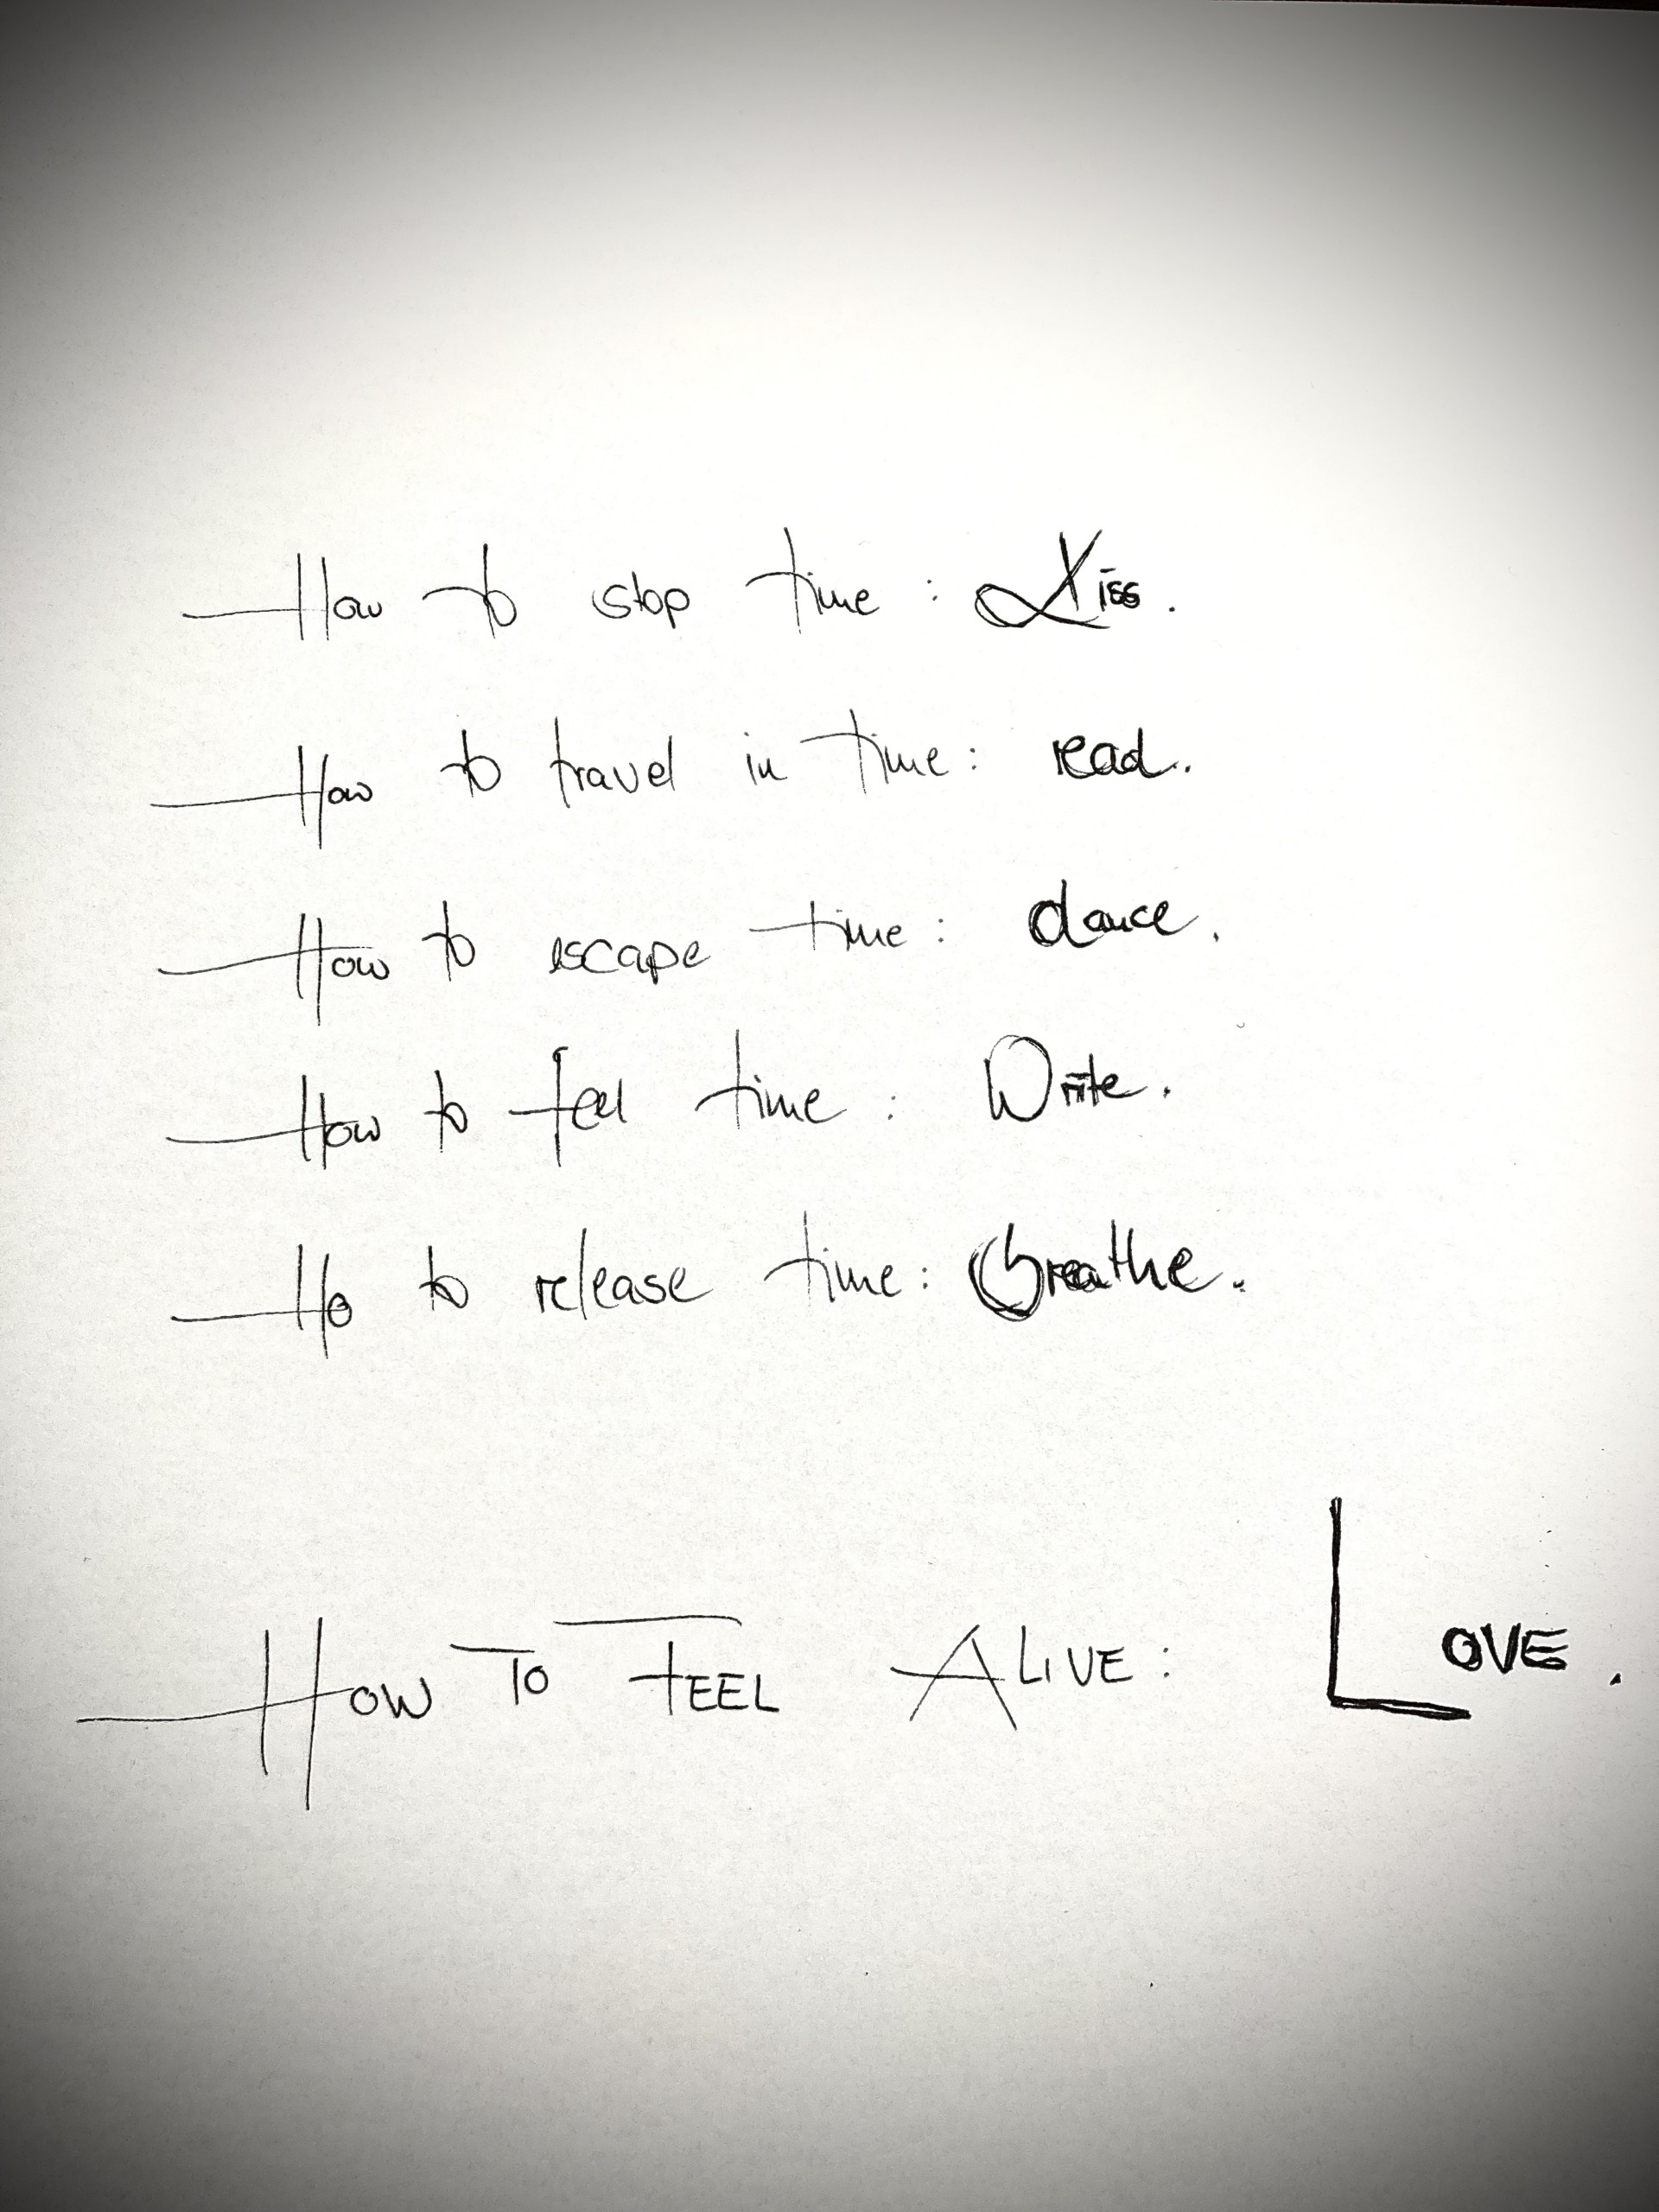 How to stop time : Kiss.
How to travel in time : read.
How to escape time : dance.
How to feel time : Write.
Ho to release time : Breathe.
HOW TO FEEL ALIVE : LOVE.